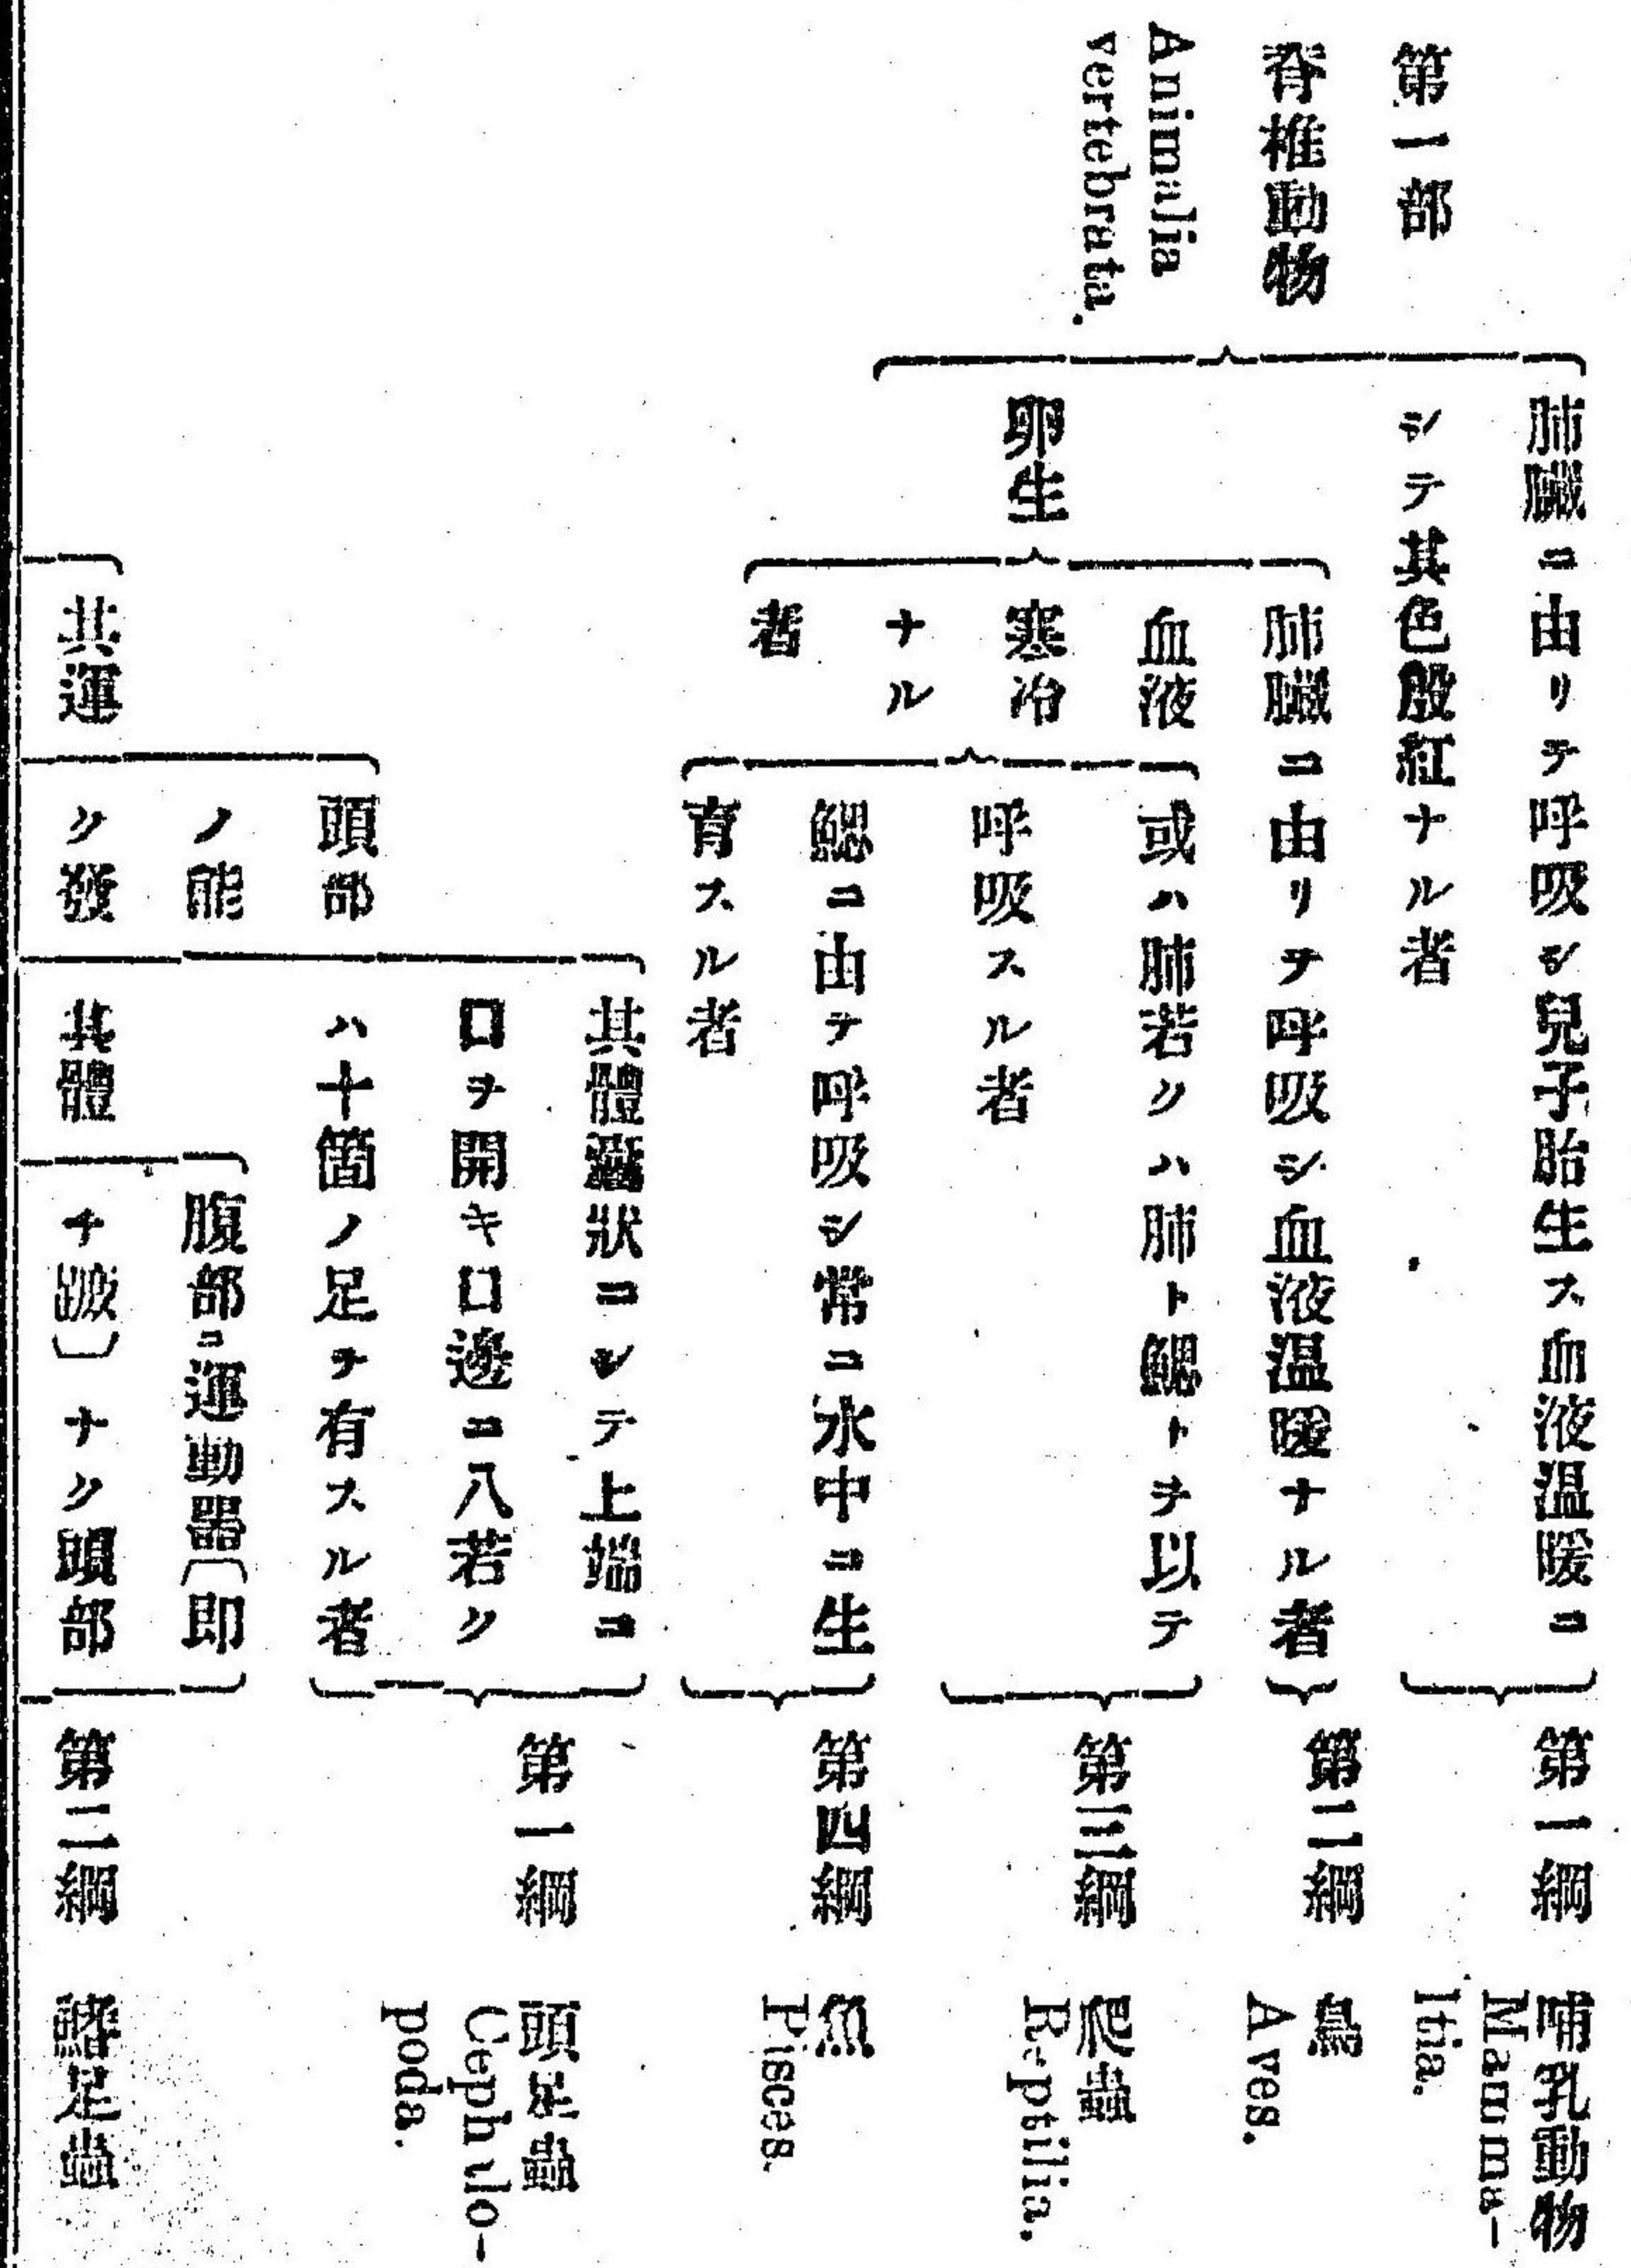 第一部
脊椎動物
Animalia
vertebrata.
肺臟ニ由リテ呼吸シ兒子胎生ス血液温暖ニ
シテ其色殷紅ナル者
第一綱
哺乳動物
Mamma-
ltia.
卵生
肺臟ニ由リヲ呼吸シ血液温暖ナル者
第二綱
鳥
Aves.
血液
寒冷
ナル
者
或ハ肺若クハ肺ト鰓トヲ以テ
呼吸スル者
第三綱
爬蟲
Reptilia.
鰓ニ由テ呼吸シ常ニ水中ニ生
育スル者
第四綱
魚
Pisces.
共運
頭部
ノ能
ク發
其體囊狀ニシテ上端ニ
口ヲ開キ口邊ニ八若ク
ハ十箇ノ足チ有スル者
第一綱
頭足蟲
Cephalo-
poda.
其體
腹部ニ運動器〔即
チ鰭〕ナク頭部
第二綱
鰭足蟲